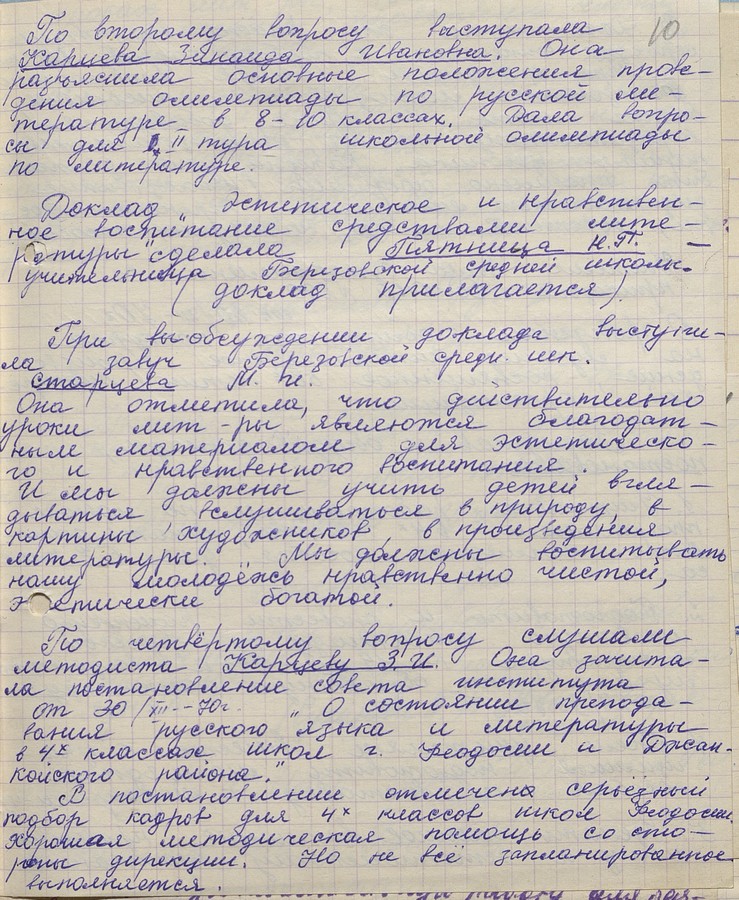 10
По второму вопросу выступала
Карцева Зинаида Ивановна. Она
разъяснила основные положения прове-
дения олимпиады по русской ли-
тературе в 8-10 классах. Дала вопро-
сы для II тура школьной олимпиады
по литературе.
Доклад „Эстетическое и нравствен-
ное воспитание средствами лите-
ратуры" сделала Пятница Н.П. –
учительница Березовской средней школы.
(доклад прилагается).
При вы обсуждении доклада выступи-
ла завуч Березовской средн. шк.
Старцева М. И.
Она отметила, что действительно
уроки лит-ры являются благодат-
ным материалом для эстетическо-
го и нравственного воспитания.
И мы должны учить детей вгля-
дываться вслушиваться в природу, в
картины художников, в произведения
литературы. Мы должны воспитывать
нашу молодёжь нравственно чистой,
эстетически богатой.
По четвёртому вопросу слушали
методиста Карцеву З.И. Она зачита-
ла постановление совета института
от 30/XII--70г. „О состоянии препода-
вания русского языка и литературы
в 4х классах школ г. Феодосии и Джан-
койского района."
В постановлении отмечена серьёзный
подбор кадров для 4х классов школ Феодосии.
Хорошая методическая помощь со сто-
роны дирекции. Но не всё запланированное
выполняется.